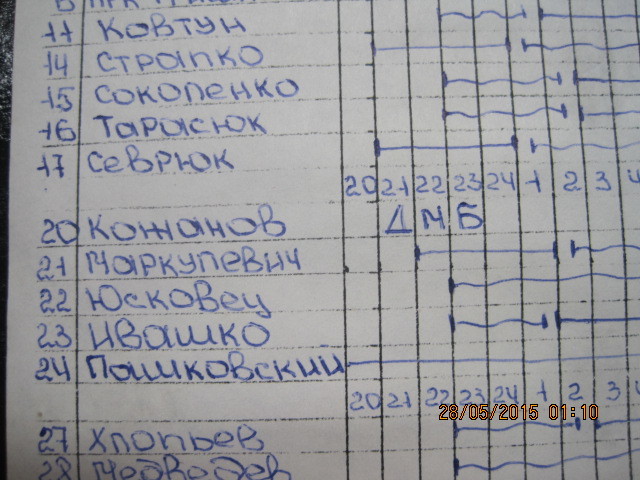 11 Ковтун
14 Страпко
15 Соколенко
16 Тарасюк
17 Севрюк
20 21 22 23 24 1 2 3
20 Кожанов ДМБ
21 Маркулевич
22 Юсковец
23 Ивашко
24 Пашковский
20 21 22 23 24 1 2 3
28/05/2015 01:10
27 Хлопьев
28 Медведев